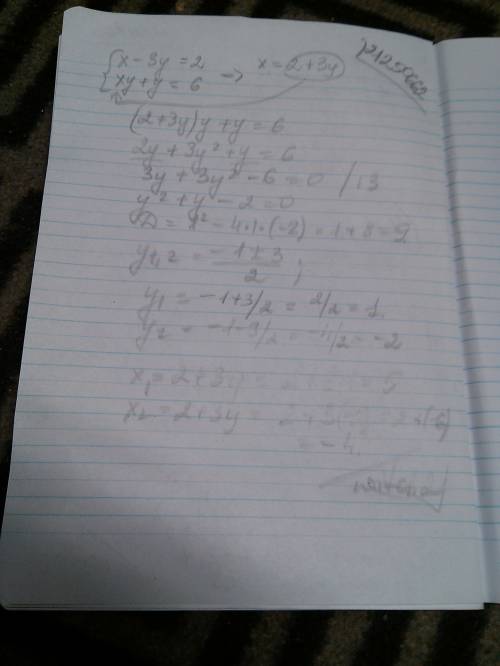 x - 3y = 2
xy + y = 6 => x = 2 + 3y
(2+3y)y + y = 6
2y + 3y² + y = 6
3y + 3y² - 6 = 0 / :3
y² + y - 2 = 0
D = 1² - 4·1·(-2) = 1 + 8 = 9
y₁,₂ = -1 ± 3 / 2 ;
y₁ = -1+3/2 = 2/2 = 1.
y₂ = -1-3/2 = -4/2 = -2
x₁ = 2 + 3y = = 5
x₂ = 2 + 3y = 2 + 3(-2) = 2 + (-6)
= -4.